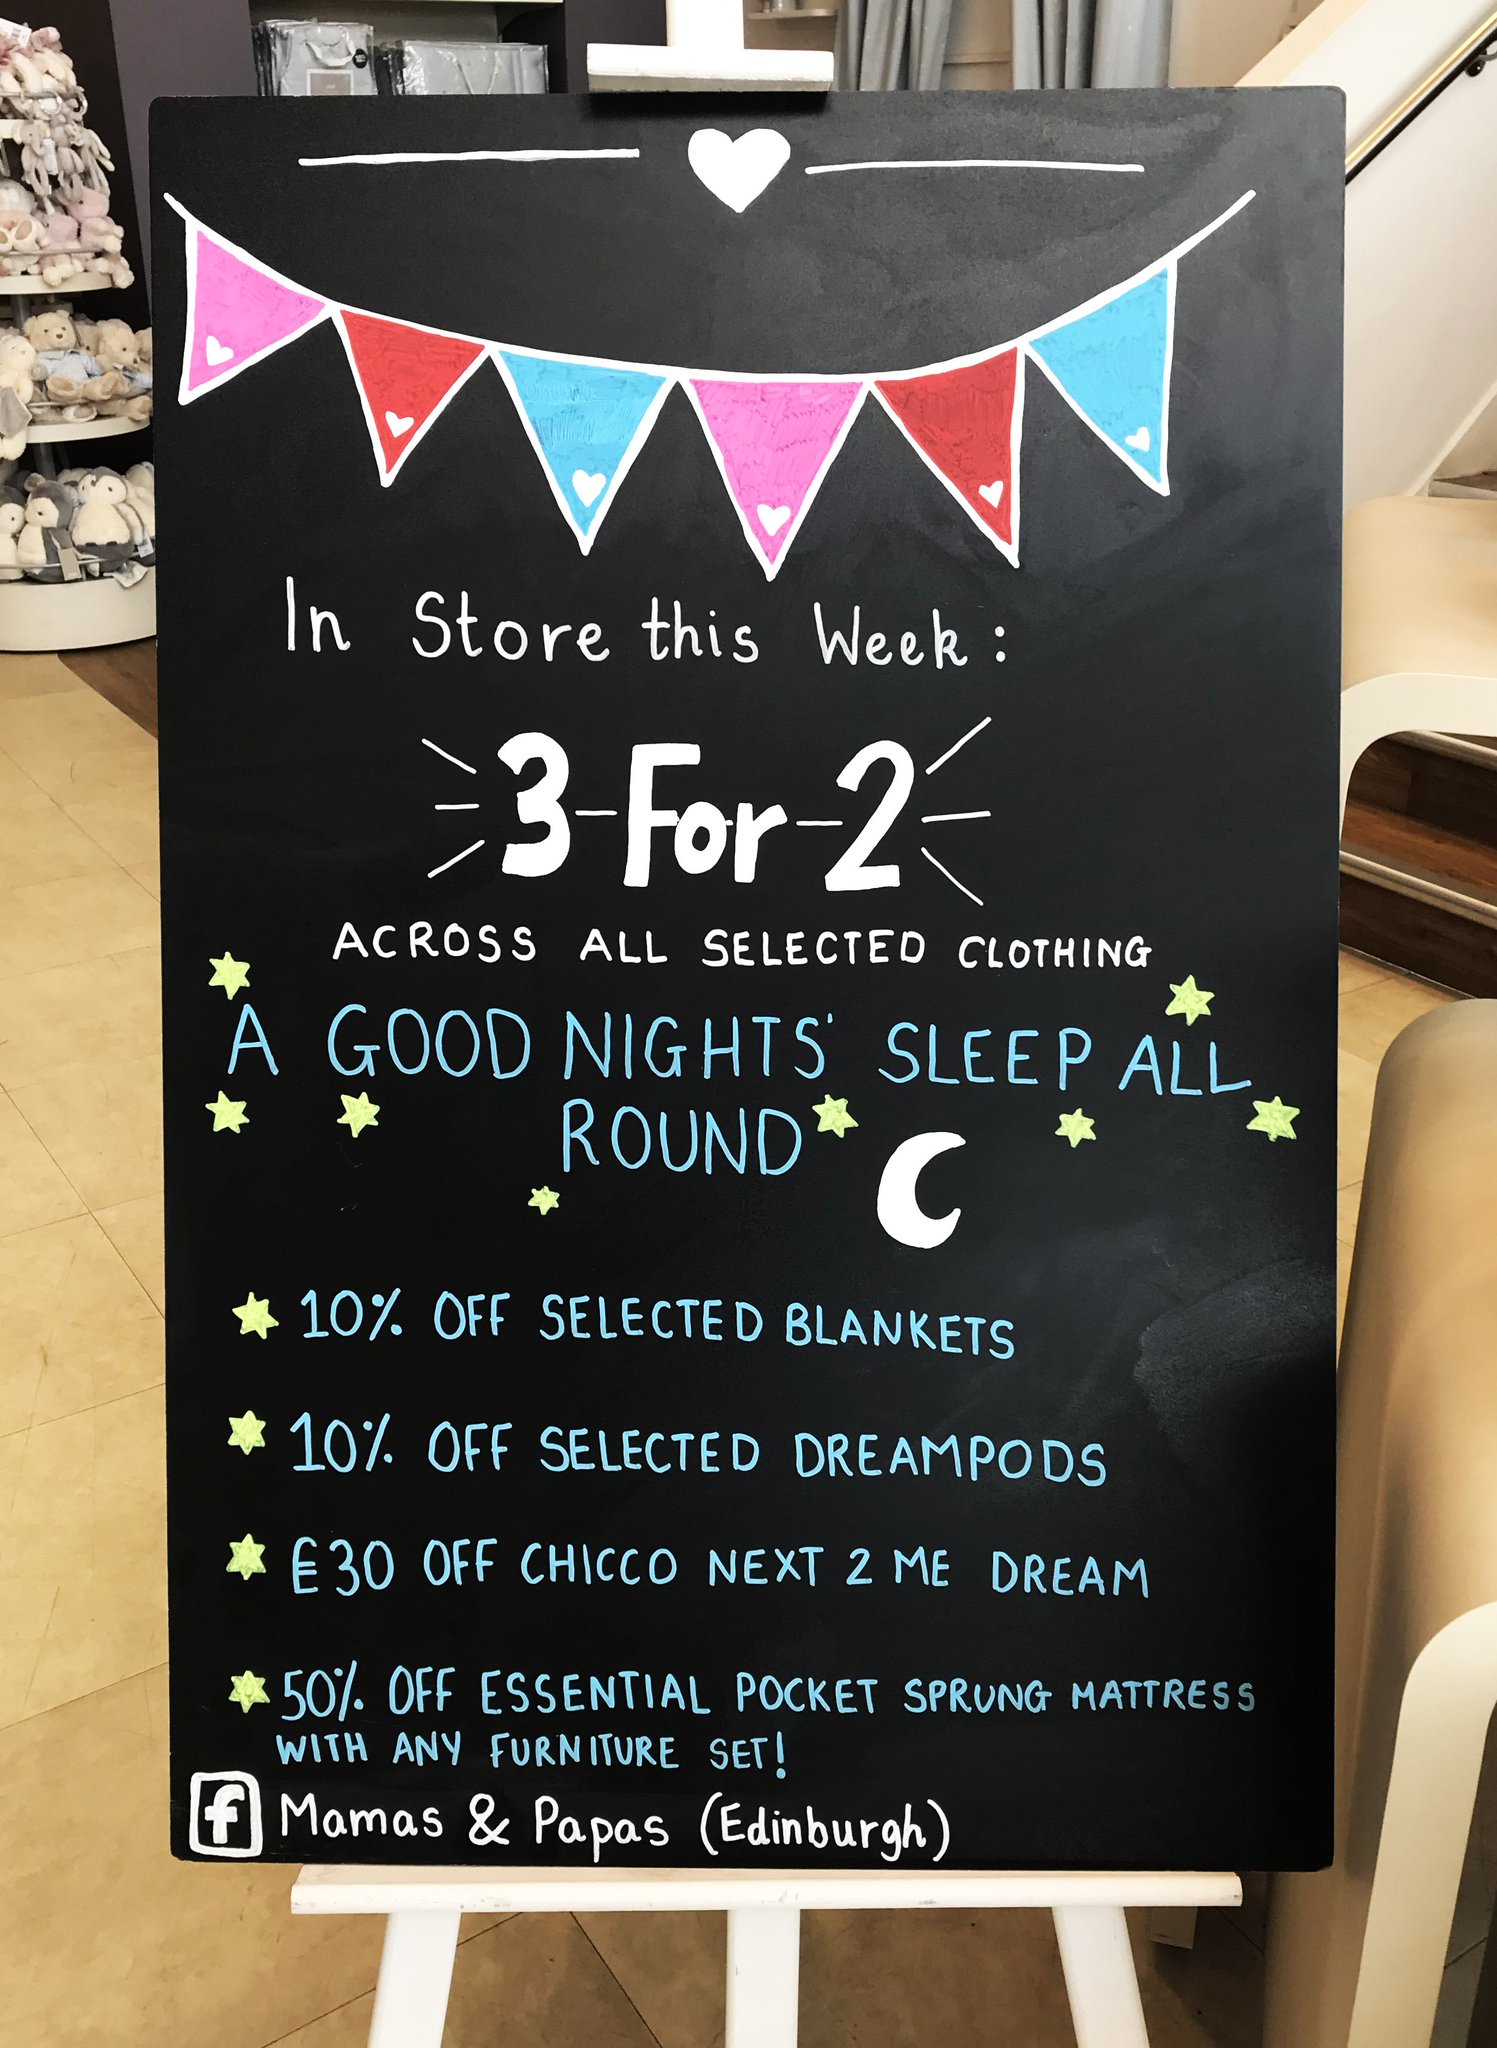 In Store this Week:
3-For-2
ACROSS ALL SELECTED CLOTHING
A GOOD NIGHTS' SLEEP ALL
ROUND
10% OFF SELECTED BLANKETS
10% OFF SELECTED DREAMPODS
£30 OFF CHICCO NEXT 2 ME DREAM
50% OFF ESSENTIAL POCKET SPRUNG MATTRESS
WITH ANY FURNITURE SET!
f Mamas & Papas (Edinburgh)